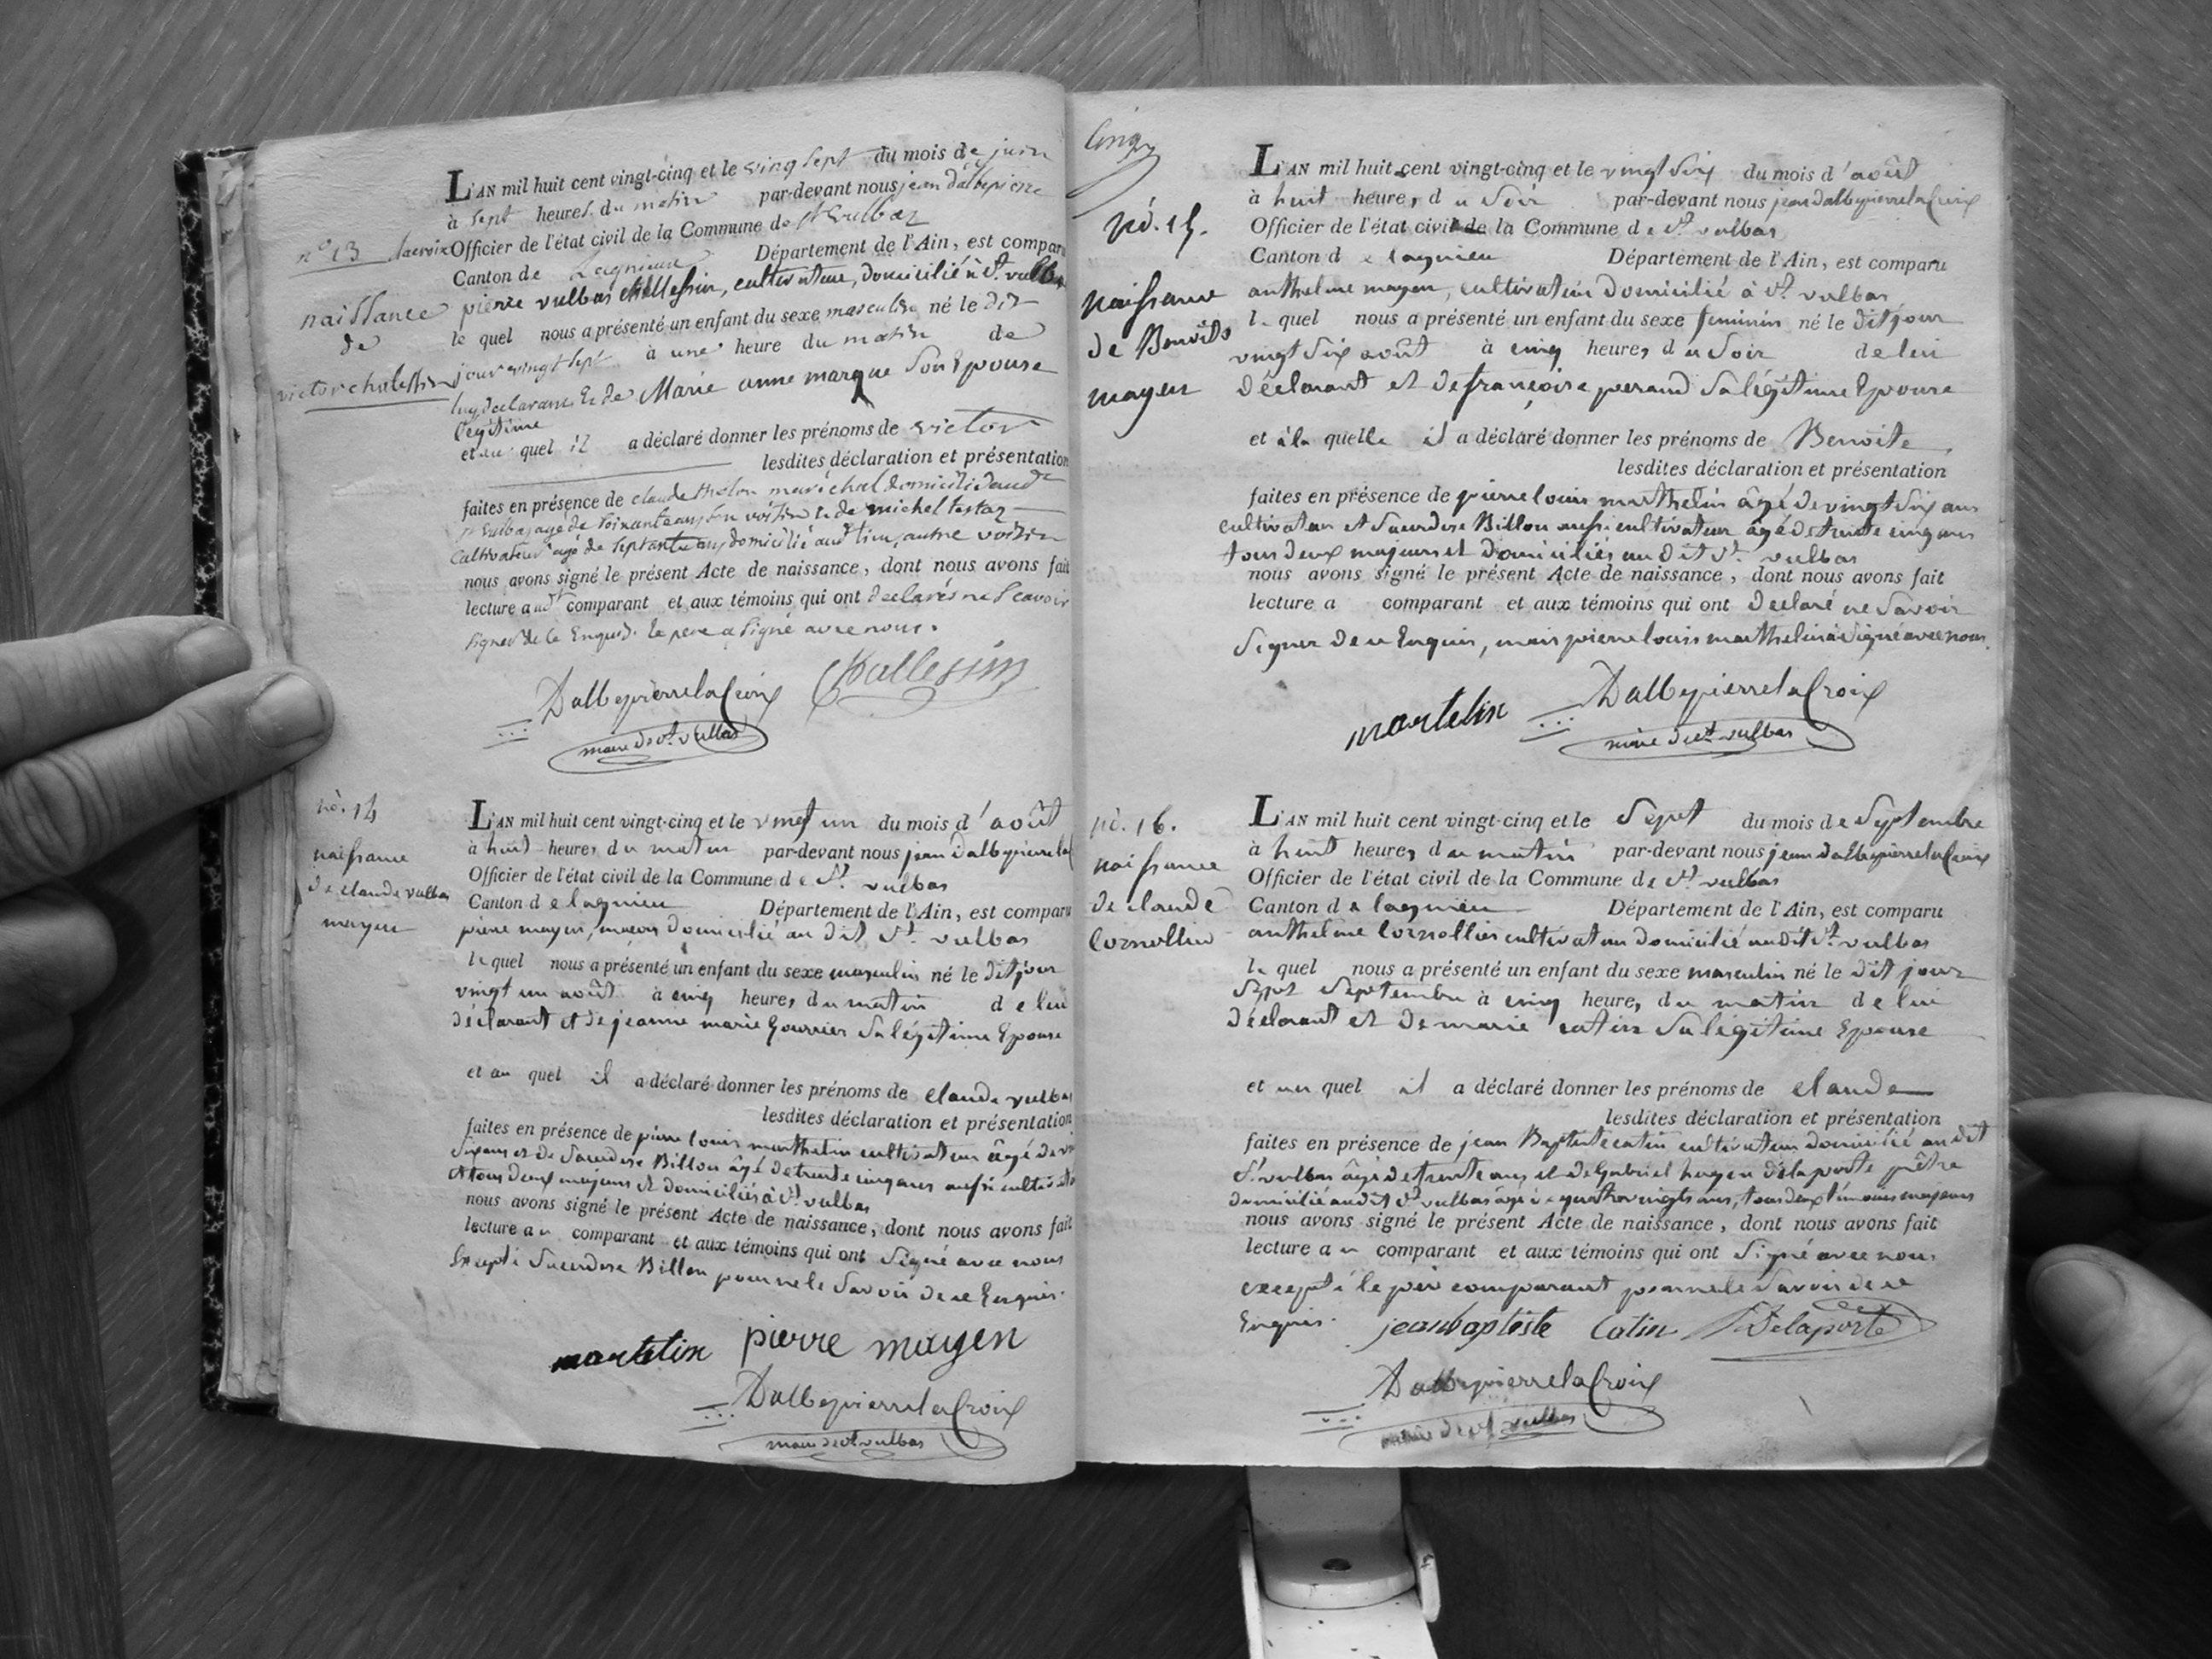 n° 13
naissance
de
victor challessin
L'AN mil huit cent vingt-cinq et le vingt sept du mois de juin
à sept heures du matin par-devant nous jean dalbepierre
lacroix Officier de l'état civil de la Commune de St Vulbas
Canton de Lagnieux Département de l'Ain, est comparu
pierre vulbas challessin, cultivateur, domicilié à St. vulbas
le quel nous a présenté un enfant du sexe masculin né le dit
jour vingt sept à une heure du matin de
luy declarant & de Marie anne marque Son Epouse
legitime
et au quel il a déclaré donner les prénoms de victor
lesdites déclaration et présentation
faites en présence de claude maréchal domicilié audt
St Vulbas agé de soixante ans son voisin & de michel testaz
cultivateur agé de septante ans domicilié audt lieu, autre voisin
nous avons signé le présent Acte de naissance, dont nous avons fait
lecture audt comparant et aux témoins qui ont declarés ne scavoir
signer de ce Enquis. le pere a signé avec nous.
Dalbepierrelacroix Challessin
maire de St vulbas
nò. 14
naissance
de claude vulbas
mayen
L'AN mil huit cent vingt-cinq et le vingt un du mois d'août
à huit heures du matin par-devant nous jean dalbepierrela
Officier de l'état civil de la Commune de St. vulbas
Canton de lagnieu Département de l'Ain, est comparu
pierre mayen, maçon domicilié au dit St. vulbas
le quel nous a présenté un enfant du sexe masculin né le dit jour
vingt un août à cinq heures du matin de lui
déclarant et de jeanne marie Gourrier Sa légitime Epouse
et au quel il a déclaré donner les prénoms de claude vulbas
lesdites déclaration et présentation
faites en présence de pierre louis marthelin cultivateur âgé de
Six ans et de Sacerdose Billon âgé de trente cinq ans aussi
et tous deux majeurs et domiciliés à St. vulbas
nous avons signé le présent Acte de naissance, dont nous avons fait
lecture au comparant et aux témoins qui ont Signé avec nous
Excepté Sacerdose Billon pour ne le Savoir de ce Enquis.
martelin pierre mayen
DalbepierrelaCroix
maire de St vulbas
Cinq
nò. 15.
naissance
de Benoite
mayen
L'AN mil huit cent vingt-cinq et le vingt Six du mois d'août
à huit heures du Soir par-devant nous jean dalbepierrelaCroix
Officier de l'état civil de la Commune de St. vulbas
Canton de lagnieu Département de l'Ain, est comparu
anthelme mayen, cultivateur domicilié à St. vulbas
le quel nous a présenté un enfant du sexe feminin né le dit jour
vingt Six août à cinq heures du Soir de lui
déclarant et de françoise perand Sa légitime Epouse
et à la quelle il a déclaré donner les prénoms de Benoite
lesdites déclaration et présentation
faites en présence de pierre louis marthelin âgé de vingt Six ans
cultivateur et Sacerdose Billon aussi cultivateur âgé de trente cinq ans
tous deux majeurs et domiciliés au dit St. vulbas
nous avons signé le présent Acte de naissance, dont nous avons fait
lecture a comparant et aux témoins qui ont declaré ne Savoir
Signer de ce Enquis, mais pierre louis marthelin à Signé avec nous.
martelin DalbepierrelaCroix
maire de St vulbas
nò. 16.
naissance
de claude
Cornollier
L'AN mil huit cent vingt-cinq et le Sept du mois de Septembre
à huit heures du matin par-devant nous jean dalbepierrelaCroix
Officier de l'état civil de la Commune de St vulbas
Canton de lagnieu Département de l'Ain, est comparu
anthelme Cornollier cultivateur domicilié au dit St. vulbas
le quel nous a présenté un enfant du sexe masculin né le dit jour
Sept Septembre à cinq heures du matin de lui
déclarant et de marie catin Sa légitime Epouse
et au quel il a déclaré donner les prénoms de claude
lesdites déclaration et présentation
faites en présence de jean Baptiste catin cultivateur domicilié au dit
St. vulbas âgé de trente ans et de Gabriel delaporte prêtre
domicilié au dit St vulbas agé de quatre vingts ans, tous deux témoins majeurs
nous avons signé le présent Acte de naissance, dont nous avons fait
lecture au comparant et aux témoins qui ont Signé avec nous,
excepté le père comparant pour ne le Savoir de ce
Enquis. jean baptiste Catin Delaporte
DalbepierrelaCroix
maire de St vulbas